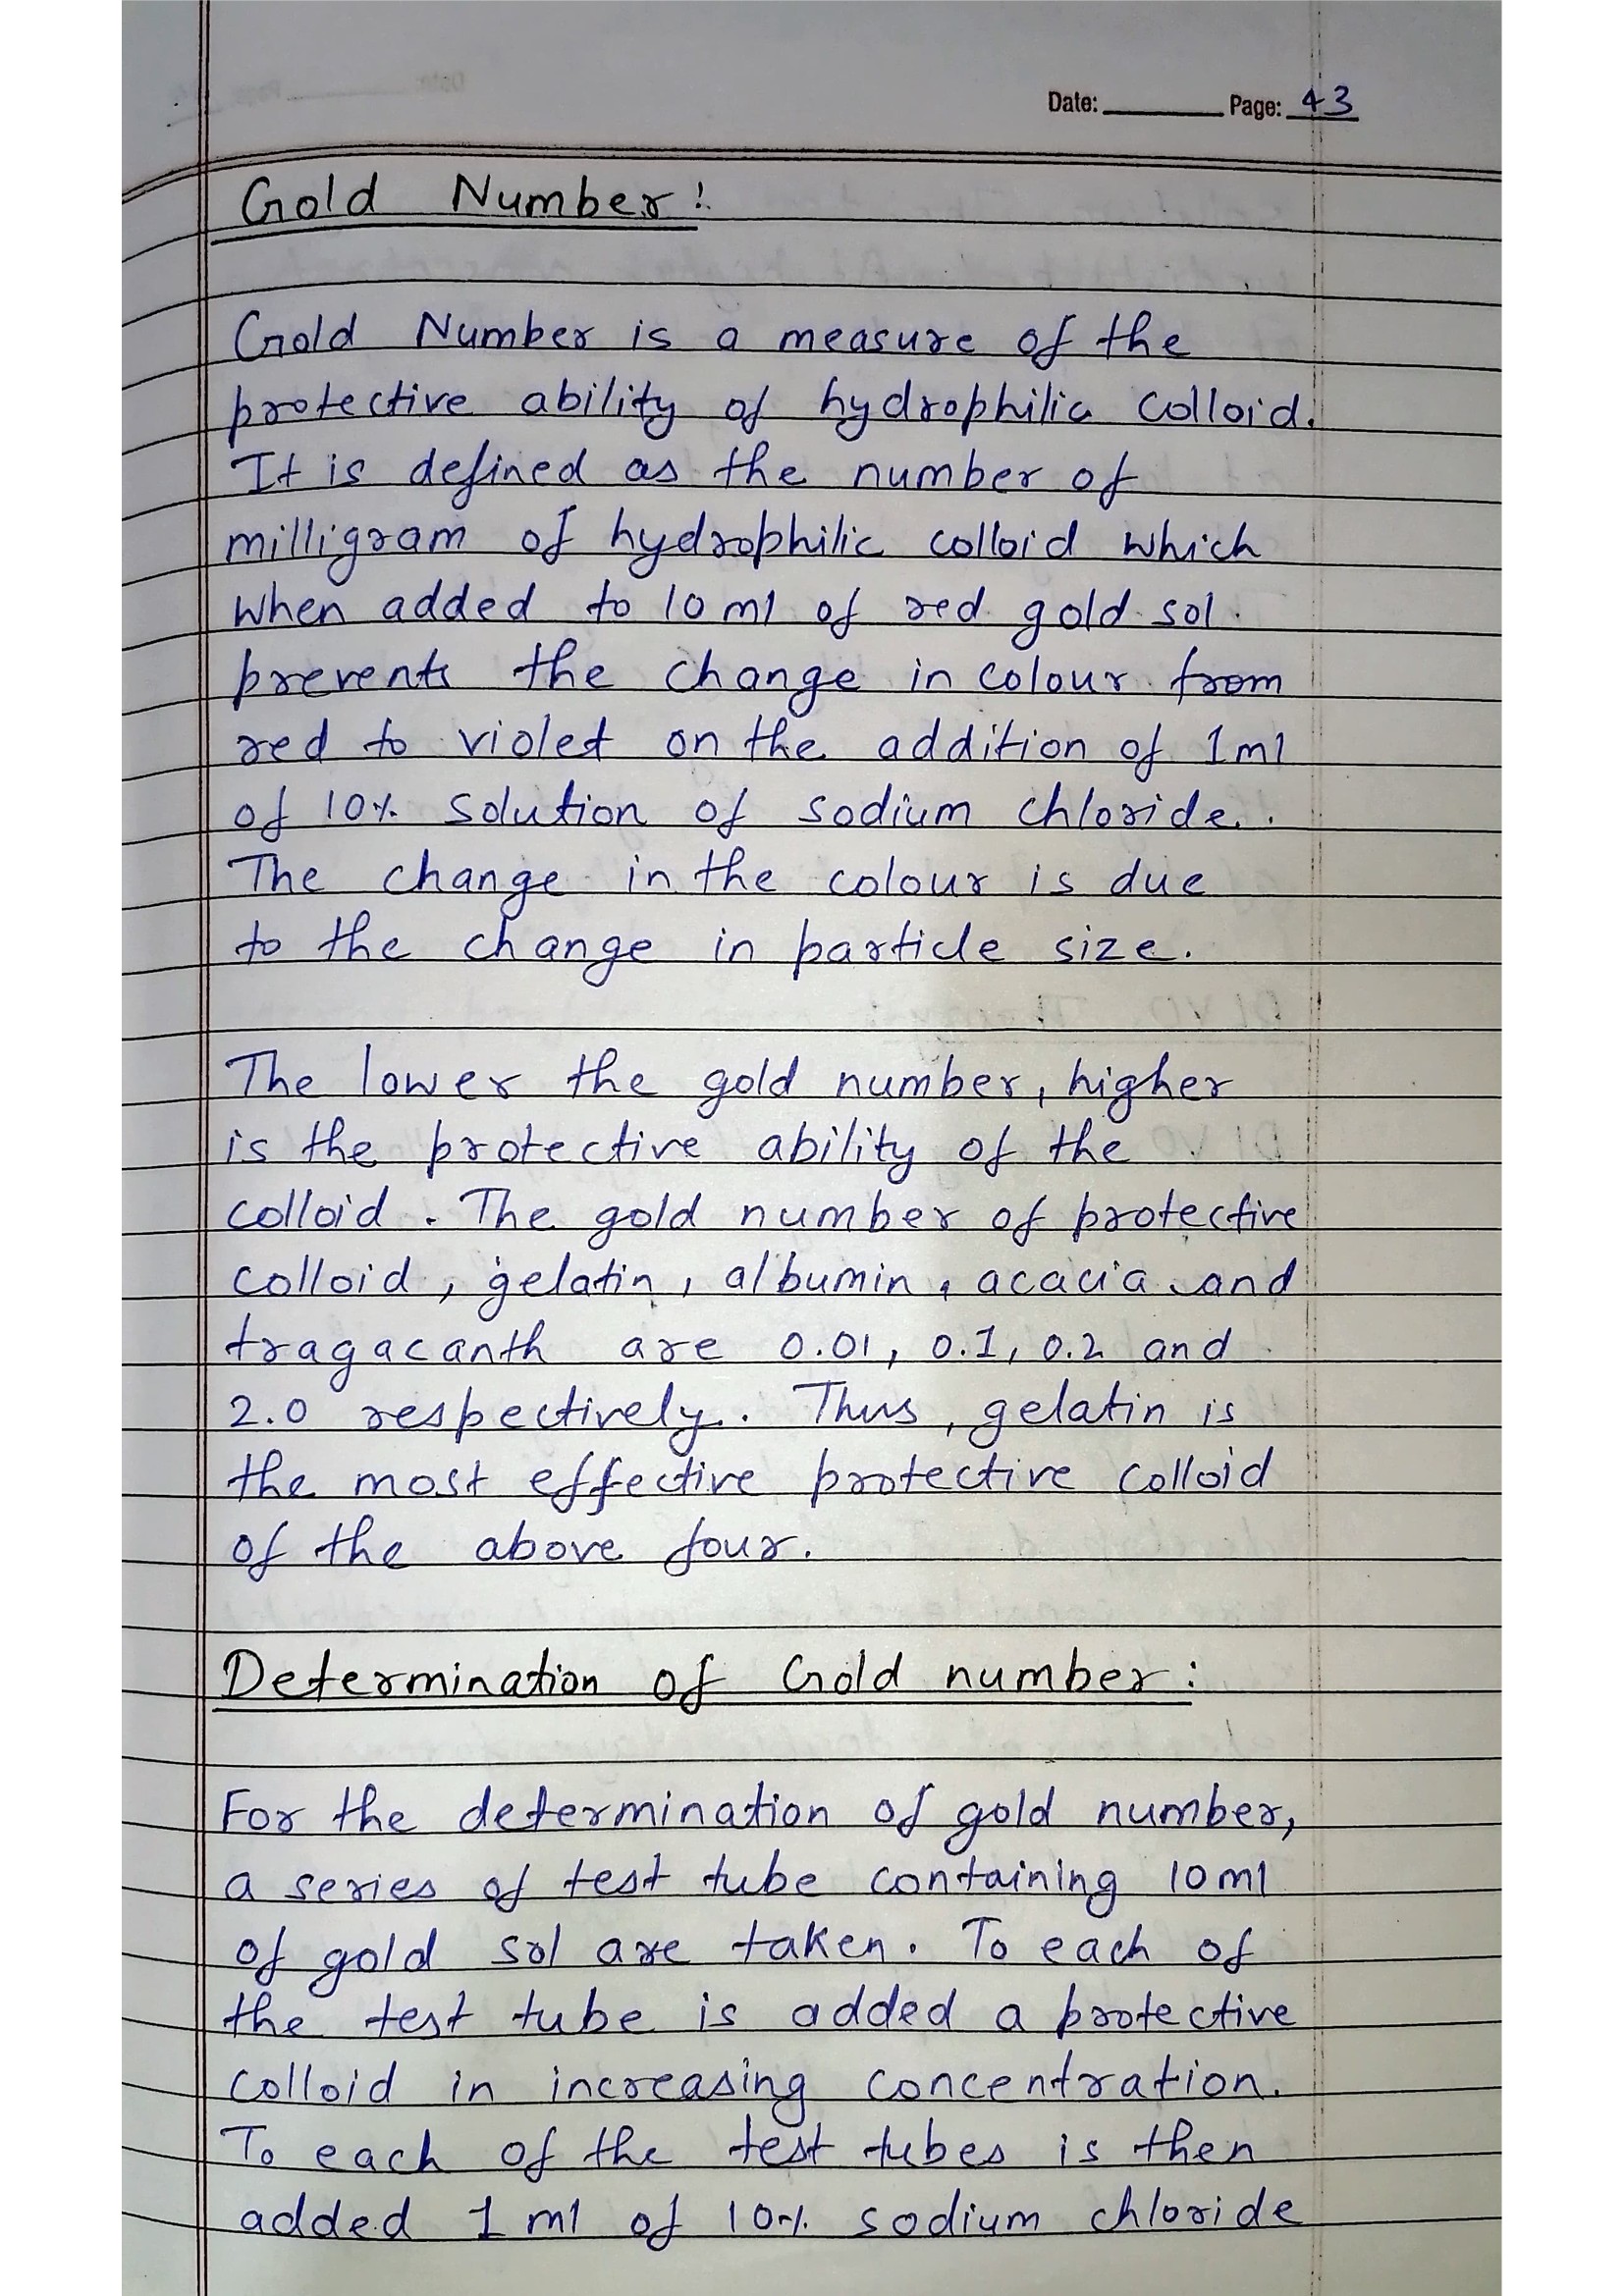 Date: Page: 43
Gold Number:
Gold Number is a measure of the
protective ability of hydrophilic colloid.
It is defined as the number of
milligram of hydrophilic colloid which
when added to 10 ml of red gold sol
prevents the change in colour from
red to violet on the addition of 1 ml
of 10% solution of sodium chloride.
The change in the colour is due
to the change in particle size.
The lower the gold number, higher
is the protective ability of the
colloid. The gold number of protective
colloid, gelatin, albumin, acacia and
tragacanth are 0.01, 0.1, 0.2 and
2.0 respectively. Thus, gelatin is
the most effective protective colloid
of the above four.
Determination of Gold number:
For the determination of gold number,
a series of test tube containing 10 ml
of gold sol are taken. To each of
the test tube is added a protective
colloid in increasing concentration.
To each of the test tubes is then
added 1 ml of 10% sodium chloride